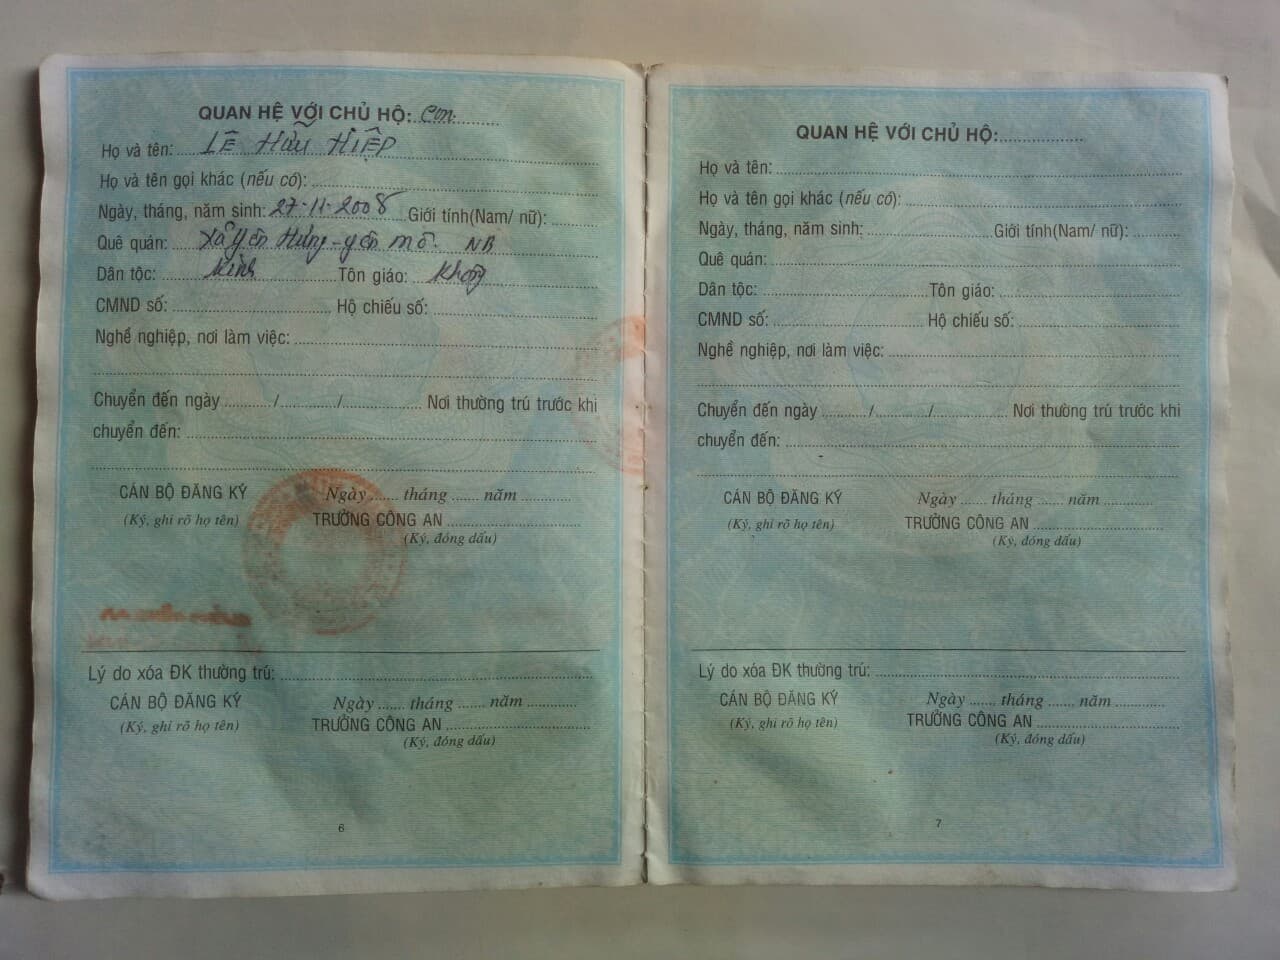 QUAN HỆ VỚI CHỦ HỘ: Con
Họ và tên: LÊ HỮU HIỆP
Họ và tên gọi khác (nếu có):
Ngày, tháng, năm sinh: 27-11-2008 Giới tính(Nam/ nữ):
Quê quán: Xã Yên Hưng - Yên Mô - NB
Dân tộc: Kinh Tôn giáo: Không
CMND số: Hộ chiếu số:
Nghề nghiệp, nơi làm việc:
Chuyển đến ngày ........../.........../.............. Nơi thường trú trước khi
chuyển đến:
CÁN BỘ ĐĂNG KÝ Ngày ....... tháng ....... năm ............
(Ký, ghi rõ họ tên) TRƯỞNG CÔNG AN
(Ký, đóng dấu)
Lý do xóa ĐK thường trú:
CÁN BỘ ĐĂNG KÝ Ngày ....... tháng ....... năm ............
(Ký, ghi rõ họ tên) TRƯỞNG CÔNG AN
(Ký, đóng dấu)
6
QUAN HỆ VỚI CHỦ HỘ:
Họ và tên:
Họ và tên gọi khác (nếu có):
Ngày, tháng, năm sinh: Giới tính(Nam/ nữ):
Quê quán:
Dân tộc: Tôn giáo:
CMND số: Hộ chiếu số:
Nghề nghiệp, nơi làm việc:
Chuyển đến ngày ........../.........../.............. Nơi thường trú trước khi
chuyển đến:
CÁN BỘ ĐĂNG KÝ Ngày ....... tháng ....... năm ............
(Ký, ghi rõ họ tên) TRƯỞNG CÔNG AN
(Ký, đóng dấu)
Lý do xóa ĐK thường trú:
CÁN BỘ ĐĂNG KÝ Ngày ....... tháng ....... năm ............
(Ký, ghi rõ họ tên) TRƯỞNG CÔNG AN
(Ký, đóng dấu)
7